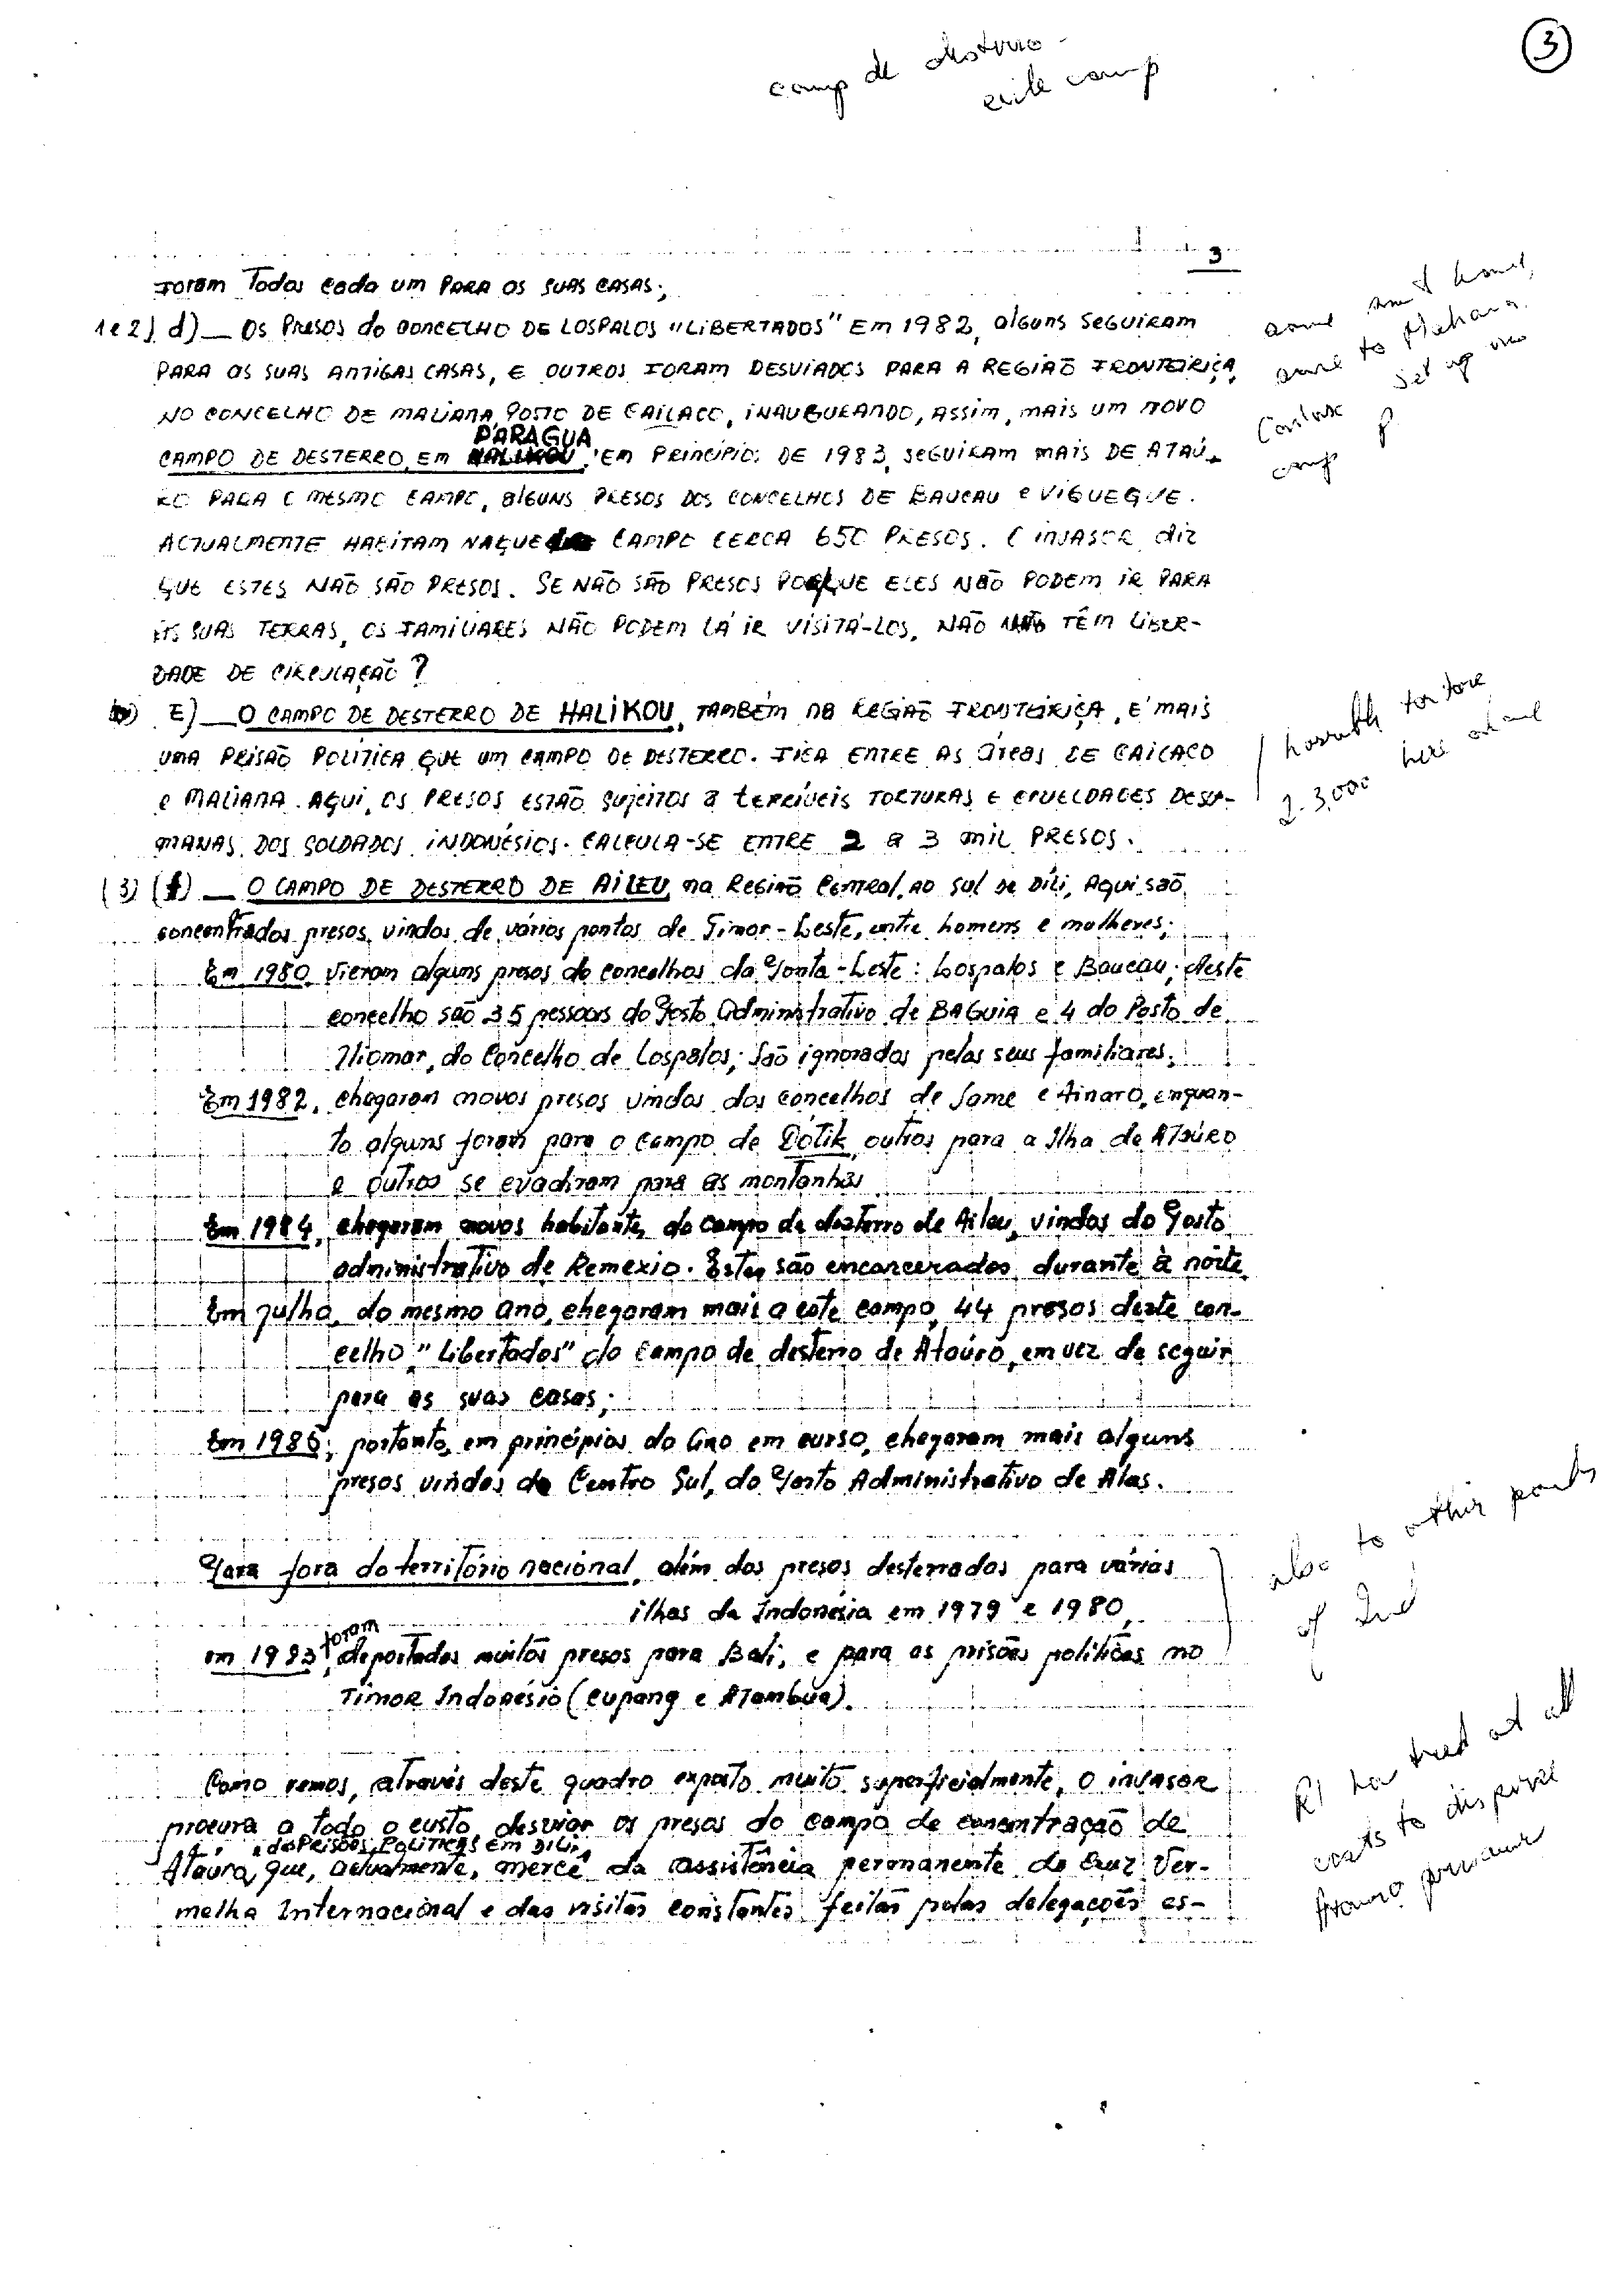 3
camp de desterro -
exile camp
3
foram Todos cada um PARA OS SUAS CASAS;
some sent home,
some to Maliana
set up new
camp
1 e 2) d)_ OS PRESOS do CONCELHO DE LOSPALOS "LIBERTADOS" EM 1982, alguns SEGUIRAM
PARA AS SUAS ANTIGAS CASAS, E OUTROS FORAM DESVIADOS PARA A REGIÃO FRONTEIRIÇA,
NO CONCELHO DE MALIANA, POSTO DE CAILACO, INAUGURANDO, ASSIM, MAIS UM NOVO
PARAGUA
CAMPO DE DESTERRO, EM HALIKOU, EM PRINCÍPIO: DE 1983, SEGUIRAM MAIS DE ATAÚ-
RO PARA O MESMO CAMPO, alGUNS PRESOS DOS CONCELHOS DE BAUCAU e VIGUEGUE.
ACTUALMENTE HABITAM NAQUE CAMPO CERCA 650 PRESOS. O INVASOR diz
QUE ESTES NÃO SÃO PRESOS. SE NÃO SÃO PRESOS PORQUE ELES NãO PODEM IR PARA
AS SUAS TERRAS, OS FAMILIARES NÃO PODEM LÁ IR VISITÁ-LOS, NÃO TÊM LIBER-
DADE DE CIRCULAÇÃO?
E)_ O CAMPO DE DESTERRO DE HALIKOU, TAMBÉM NA REGIÃO FRONTEIRIÇA, É MAIS
UMA PRISÃO POLÍTICA QUE UM CAMPO DE DESTERRO. FICA ENTRE AS áreas DE CAILACO
e MALIANA. AQUI, OS PRESOS ESTÃO SUJEITOS a terríveis TORTURAS E CRUELDADES DESU-
MANAS DOS SOLDADOS INDONÉSIOS. CALCULA-SE ENTRE 2 a 3 mil PRESOS.
horrible torture
2-3,000 here
(3) (f)_ O CAMPO DE DESTERRO DE AILEU, na REGIÃO CENTRAL, AO SUL DE DÍLI, AQUI são
concentrados presos, vindos de vários pontos de Timor-Leste, entre homens e mulheres;
Em 1980, vieram alguns presos do concelhos da Ponta-Leste: Lospalos e Baucau; deste
concelho são 35 pessoas do Posto Administrativo de BAGUIA e 4 do Posto de
Iliomar, do Concelho de Lospalos; São ignorados pelos seus familiares;
Em 1982, chegaram novos presos vindos dos concelhos de Same e Ainaro, enquan-
to alguns foram para o campo de Dótik, outros para a Ilha de ATAÚRO
e outros se evadiram para as montanhas
Em 1984, chegaram novos habitantes do campo de desterro de Aileu, vindos do Posto
administrativo de Remexio. Estes são encarcerados durante à noite.
Em julho, do mesmo ano, chegaram mais a este campo, 44 presos deste con-
celho, "Libertados" do Campo de desterro de Ataúro, em vez de seguir
para as suas casas;
Em 1985; portanto, em princípios do Ano em curso, chegaram mais alguns
presos vindos do Centro Sul, do Posto Administrativo de Alas.
Para fora do território nacional, além dos presos desterrados para várias
ilhas da Indonésia em 1979 e 1980,
foram
em 1983, deportados muitos presos para Bali, e para as prisões políticas no
TIMOR Indonésio (Cupang e ATambua).
also to other parts
of Ind
Como vemos, através deste quadro exposto muito superficialmente, o invasor
procura a todo o custo, desviar os presos do campo de concentração de
e das PRISÕES POLÍTICAS EM DILI,
Ataúro, que, actualmente, mercê da assistência permanente da Cruz Ver-
melha Internacional e das visitas constantes feitas pelas delegações es-
RI has tried at all
costs to disperse
Atauro prisoners